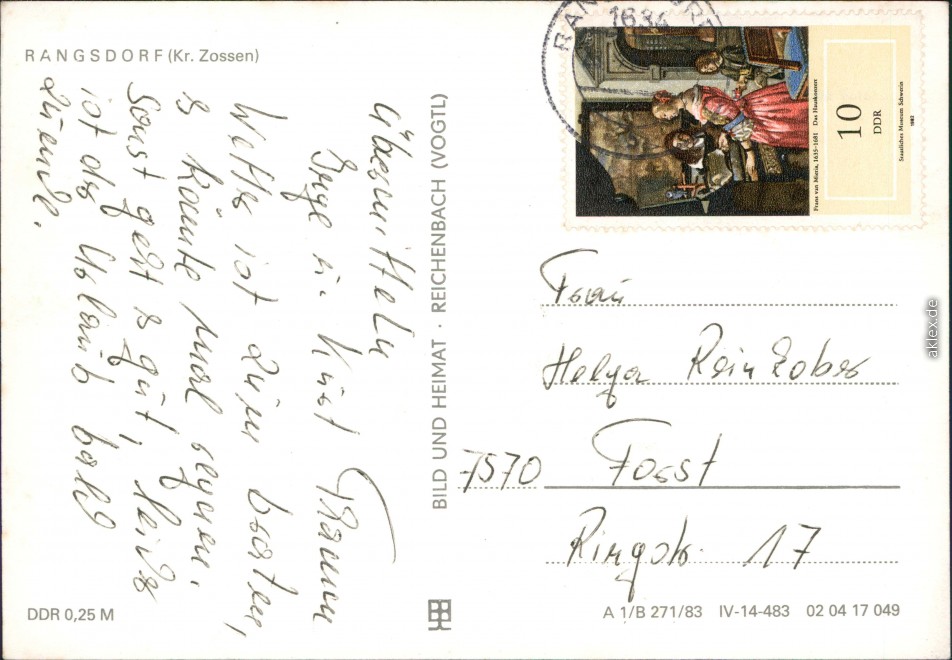 RANGSDORF (Kr. Zossen)
Übermitteln
Grüße
Wetter ist zum braten,
es könnte mal regnen.
Sonst geht es gut, leider
ist der Urlaub bald
zu ende.
BILD UND HEIMAT · REICHENBACH (VOGTL)
DDR 0,25 M
RANGSDORF
1634
Frans van Mieris, 1635–1681 Das Hauskonzert
10
DDR
Staatliches Museum Schwerin
1982
Frau
Helga
7570 Forst
Ringstr. 17
A 1/B 271/83 IV-14-483 02 04 17 049
aklex.de